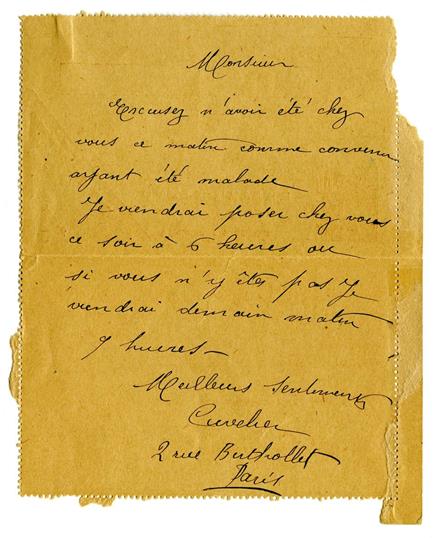 Monsieur
Excusez n'avoir été chez
vous ce matin comme convenu
ayant été malade
Je viendrai poser chez vous
ce soir à 6 heures ou
si vous n'y êtes pas Je
viendrai demain matin
9 heures -
Meilleurs Sentiments
Cuvelier
2 rue Berthollet
Paris